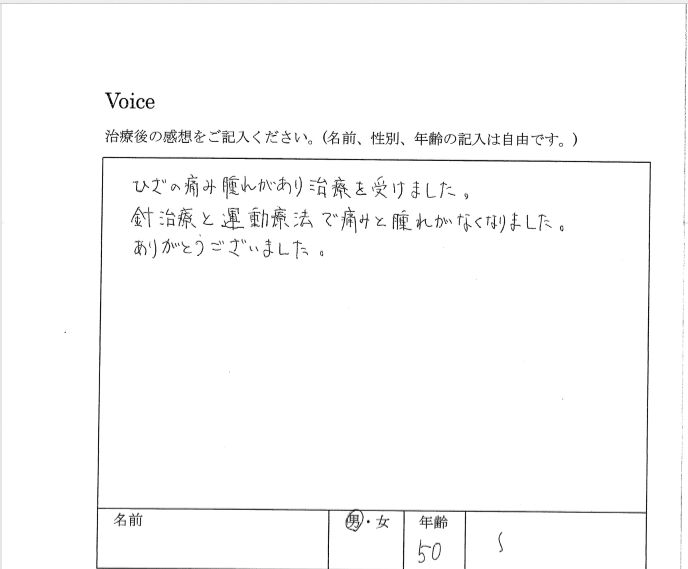 Voice
治療後の感想をご記入ください。(名前、性別、年齢の記入は自由です。)
ひざの痛み腫れがあり治療を受けました。
針治療と運動療法で痛みと腫れがなくなりました。
ありがとうございました。
名前 男・女 年齢
50